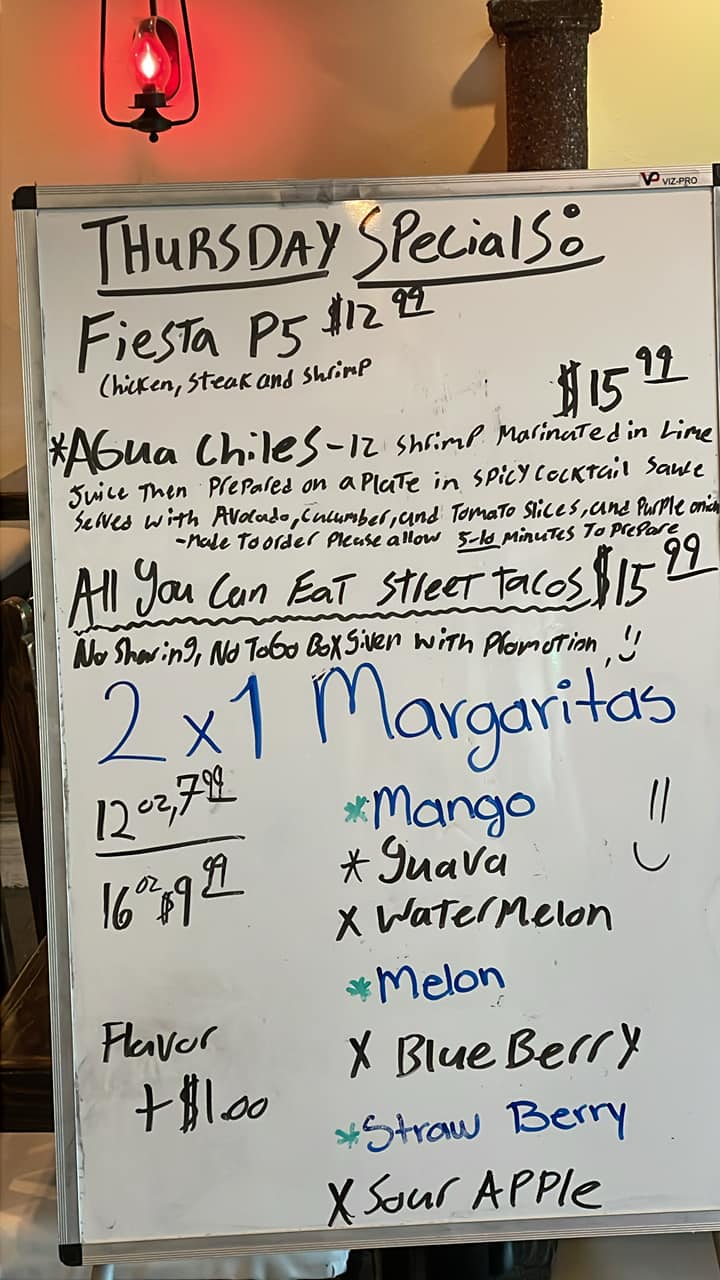 VP VIZ-PRO
THURSDAY SPecialS:
Fiesta P5 $12 99
Chicken, Steak and Shrimp
$15 99
*AGua Chiles-12 Shrimp Marinated in Lime
Juice Then Prepared on a Plate in SPicy Cocktail Sauce
Served with Avocado, Cucumber, and Tomato Slices, and Purple onion
-Made To order Please allow 5-10 Minutes To Prepare
All You Can Eat Street tacos $15 99
No Sharing, No ToGo Box Given with Plomotion, !!
2 x 1 Margaritas
12 oz, 7 99
*Mango
16 oz $9 99
* Guava
X WaterMelon
*Melon
Flavor
X BlueBerry
+ $1.00
*Straw Berry
X Sour APPle